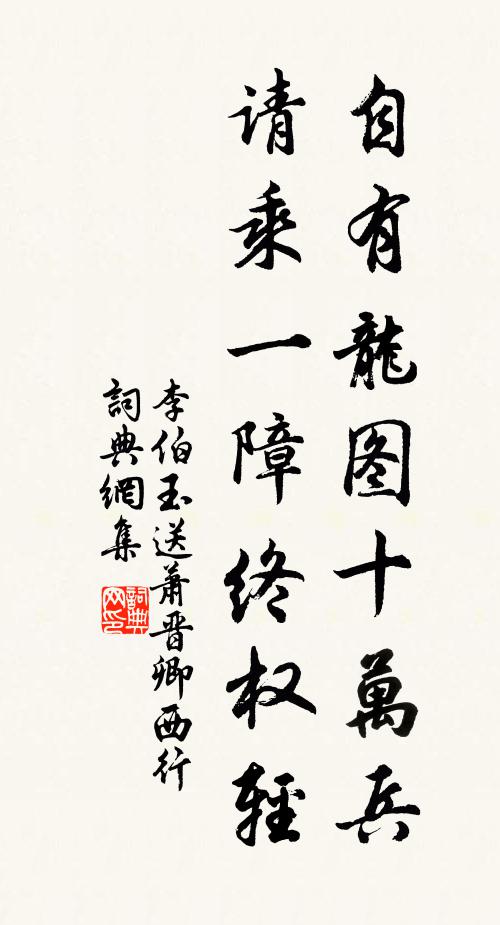 自有龍图十萬兵
请乘一障终权輕
李伯玉送萧晋卿西行
詞典網集
詞典网印